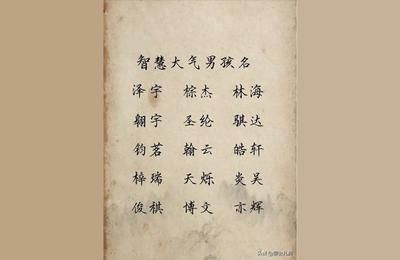 智慧大气男孩名
泽宇 棕杰 林海
翱宇 圣纶 骐达
钧茗 翰云 皓轩
梓瑞 天烁 炎昊
俊祺 博文 亦辉